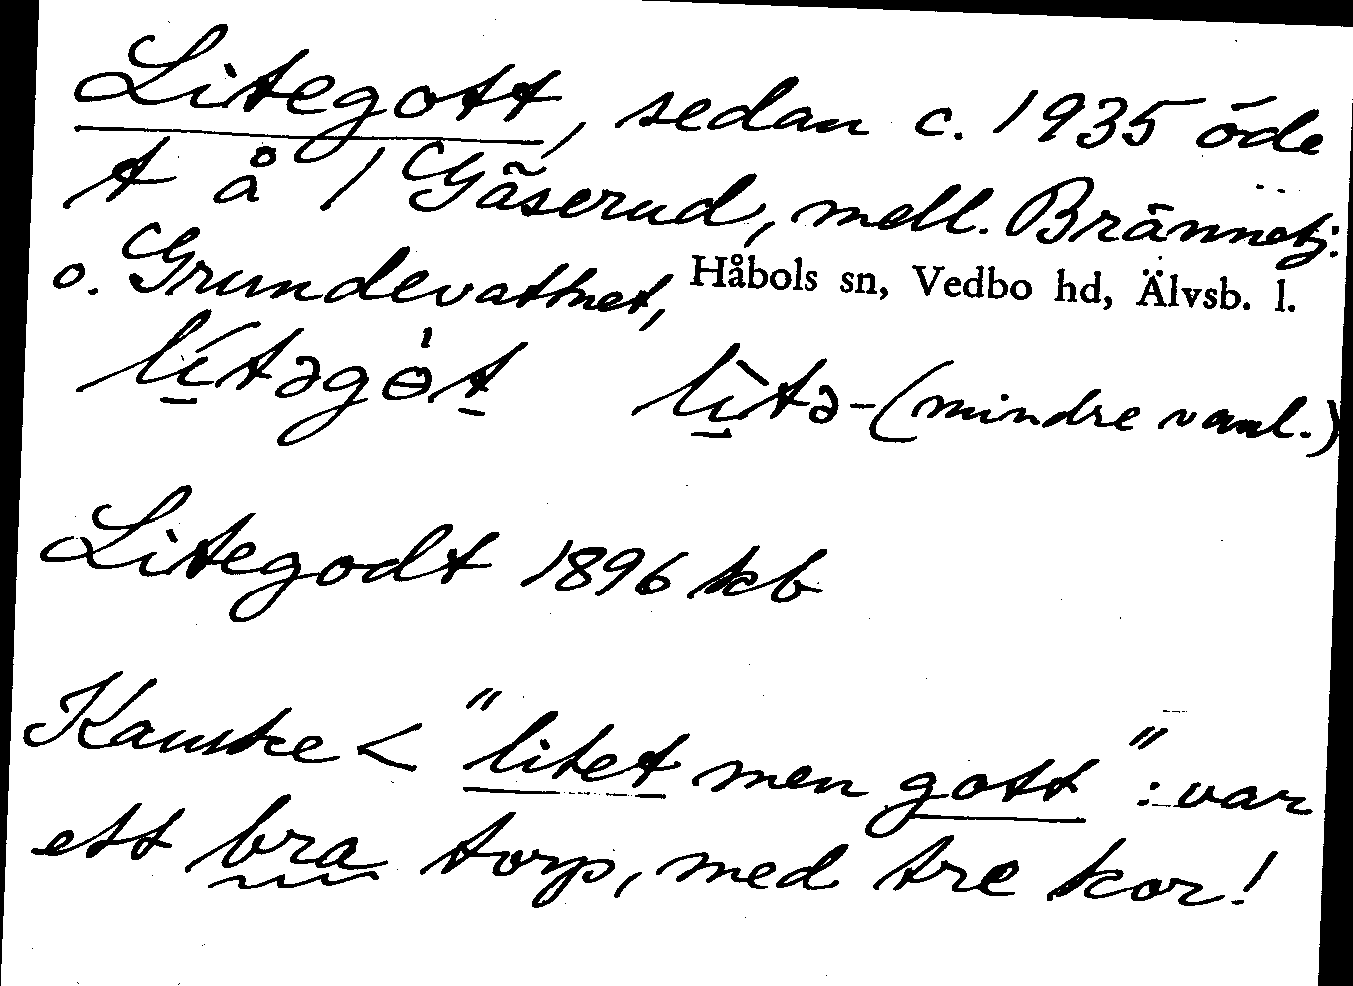 Litegott, sedan c. 1935 öde
t å 1 Gäserud, mell. Brännetj:
o. Grundevattnet, Håbols sn, Vedbo hd, Älvsb. l.
lítəgòt lìtə- (mindre vanl.)
Litegodt 1896 kb
Kanske < "litet men gott": var
ett bra torp, med tre kor!